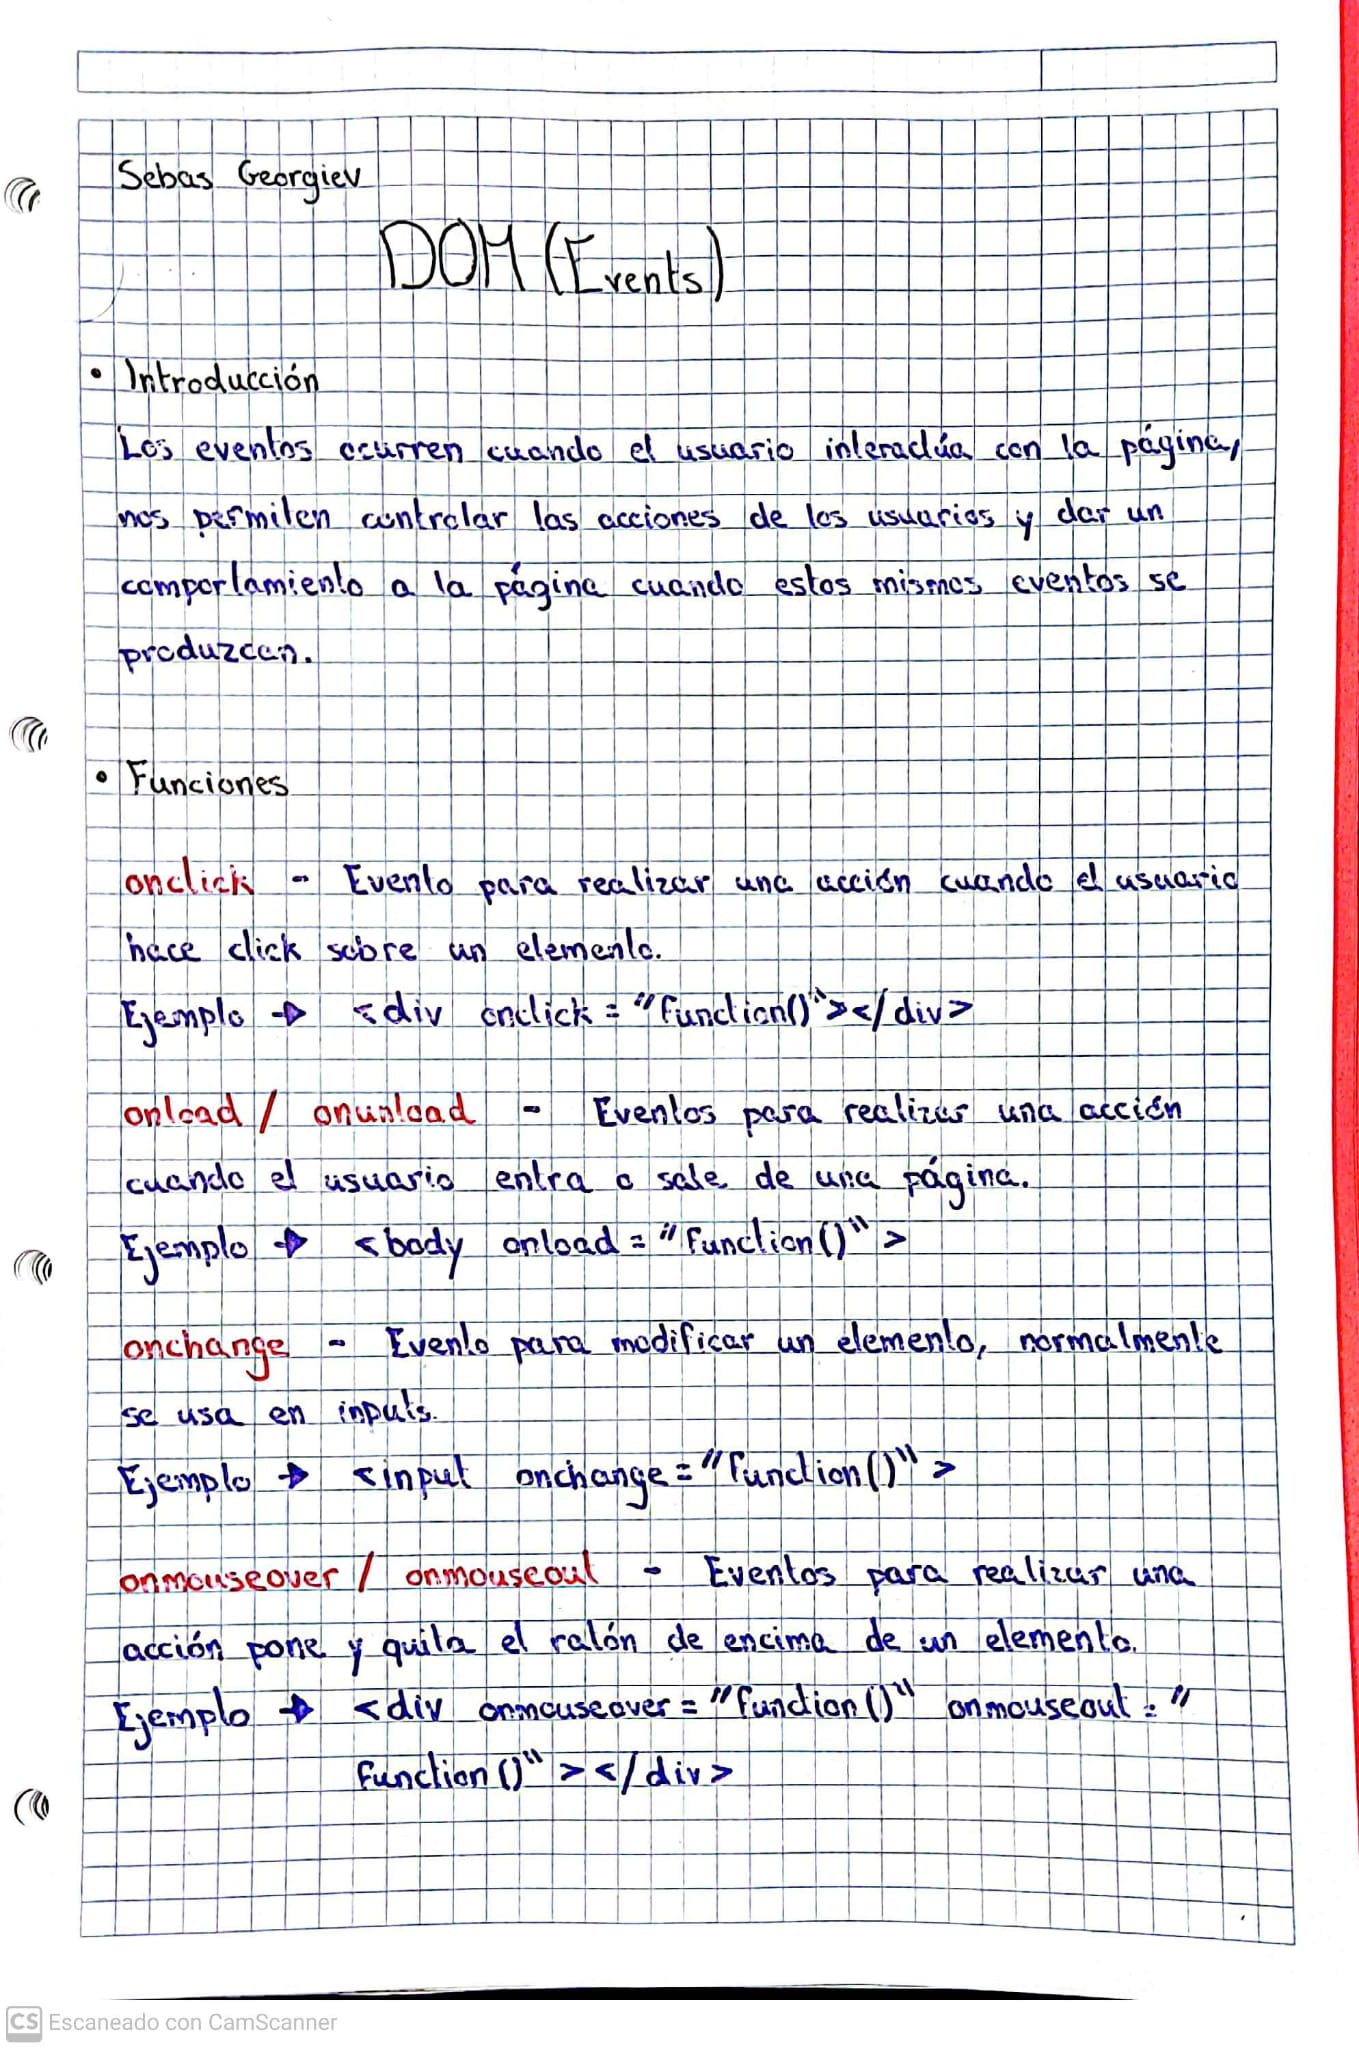 Sebas Georgiev
DOM (Events)
• Introducción
Los eventos ocurren cuando el usuario interactúa con la página,
nos permiten controlar las acciones de los usuarios y dar un
comportamiento a la página cuando estos mismos eventos se
produzcan.
• Funciones
onclick - Evento para realizar una acción cuando el usuario
hace click sobre un elemento.
Ejemplo → <div onclick = "function()"></div>
onload / onunload - Eventos para realizar una acción
cuando el usuario entra o sale de una página.
Ejemplo → <body onload = "function()" >
onchange - Evento para modificar un elemento, normalmente
se usa en inputs.
Ejemplo → <input onchange = "function()" >
onmouseover / onmouseout - Eventos para realizar una
acción pone y quita el ratón de encima de un elemento.
Ejemplo → <div onmouseover = "function()" onmouseout = "
function()" ></div>
CS Escaneado con CamScanner